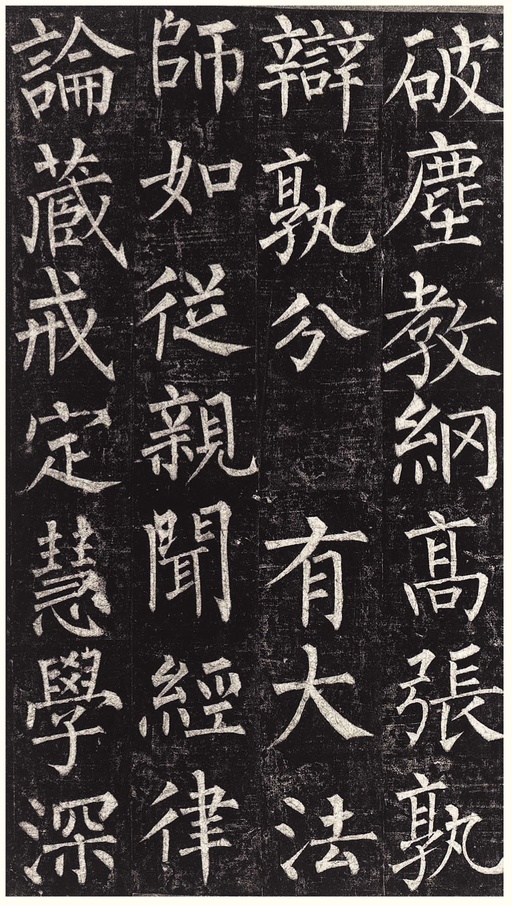 破塵教綱高張孰
辯孰分　有大法
師如従親聞經律
論蔵戒定慧學深